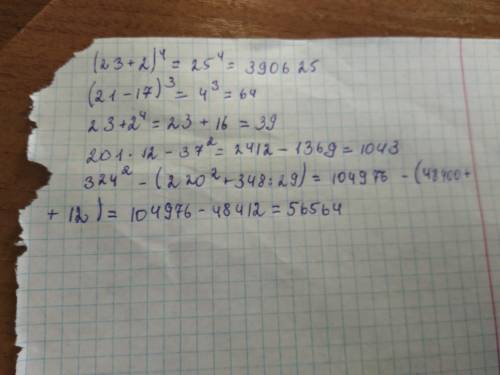 (23+2)⁴ = 25⁴ = 390625
(21-17)³ = 4³ = 64
23+2⁴ = 23+16 = 39
201·12-37² = 2412-1369 = 1043
324² - (220²+348:29) = 104976 - (48400+
+12) = 104976-48412 = 56564